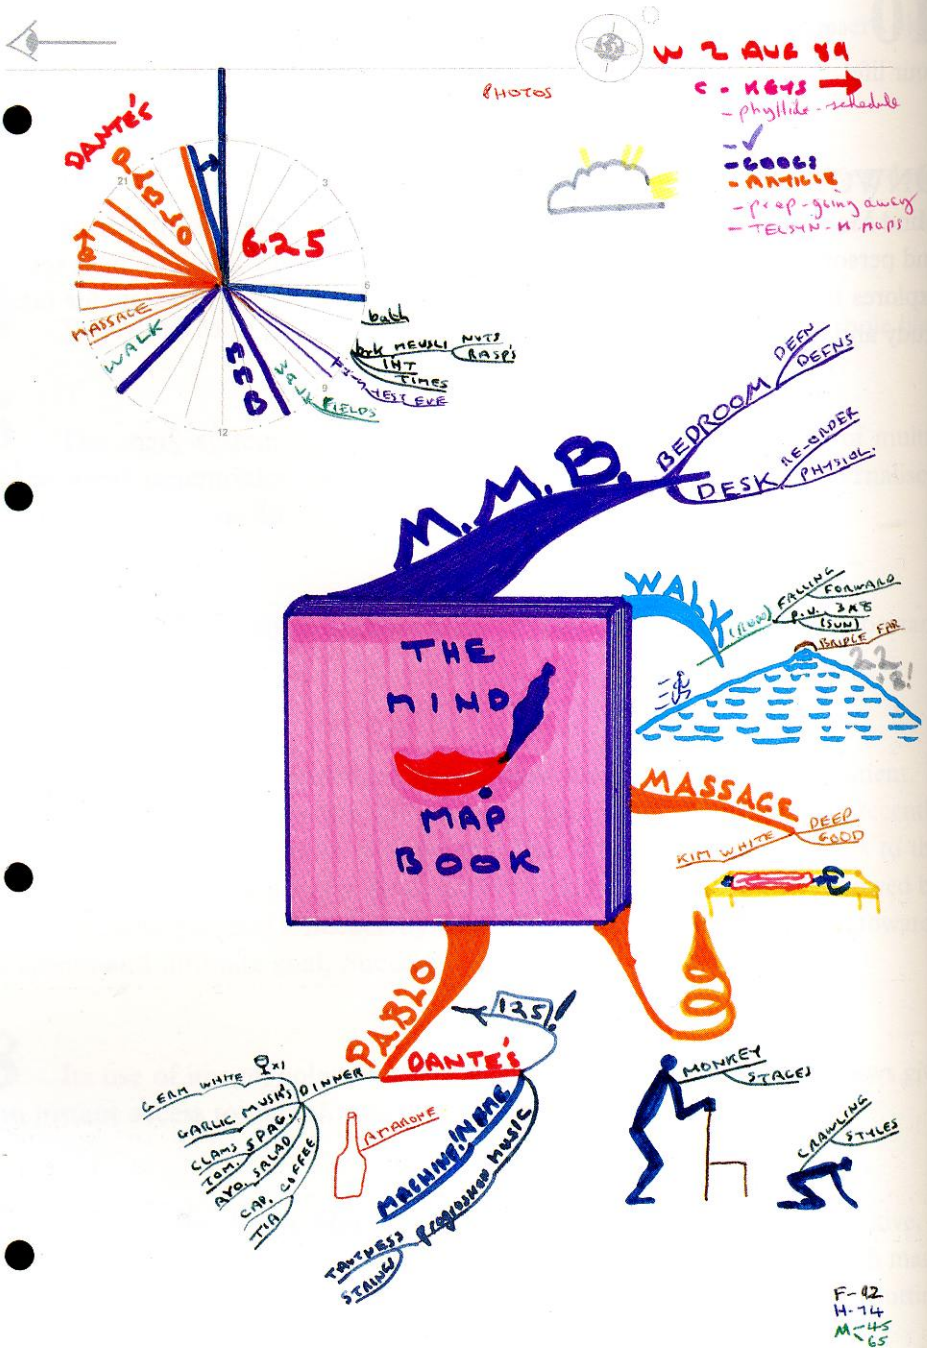 W 2 AUG 89
PHOTOS
C - KEYS
- phyllide - schedule
- GOOGS
- ARTICLE
- prep - going away
- TELSYN - M MAPS
DANTE'S
PABLO
21
3
6.25
6
9
12
MASSAGE
WALK
MMB
bath
brk MEUSLI NUTS
RASP'S
INT
TIMES
YEST EVE
3a jk FIELDS
M.M.B.
BEDROOM
DEFN
DEFNS
DESK
RE-ORDER
PHYSIOL.
WALK
(RUN) FALLING
FORWARD
P.V. 3x8
(SUN)
BRIDGE FAR
22
.8!
THE
MIND
MAP
BOOK
MASSAGE
DEEP
GOOD
KIM WHITE
PABLO
125!
DANTE'S
DINNER
GERM WHITE x1
GARLIC MUSH'S
CLAMS SPAG.
TOM.
AVO. SALAD
CAP. COFFEE
TIA
AMARONE
MACHINE, INFME
progression MUSIC
TAUTNESS
STRINGS
MONKEY
STAGES
CRAWLING
STYLES
F-92
H-74
M-45
65